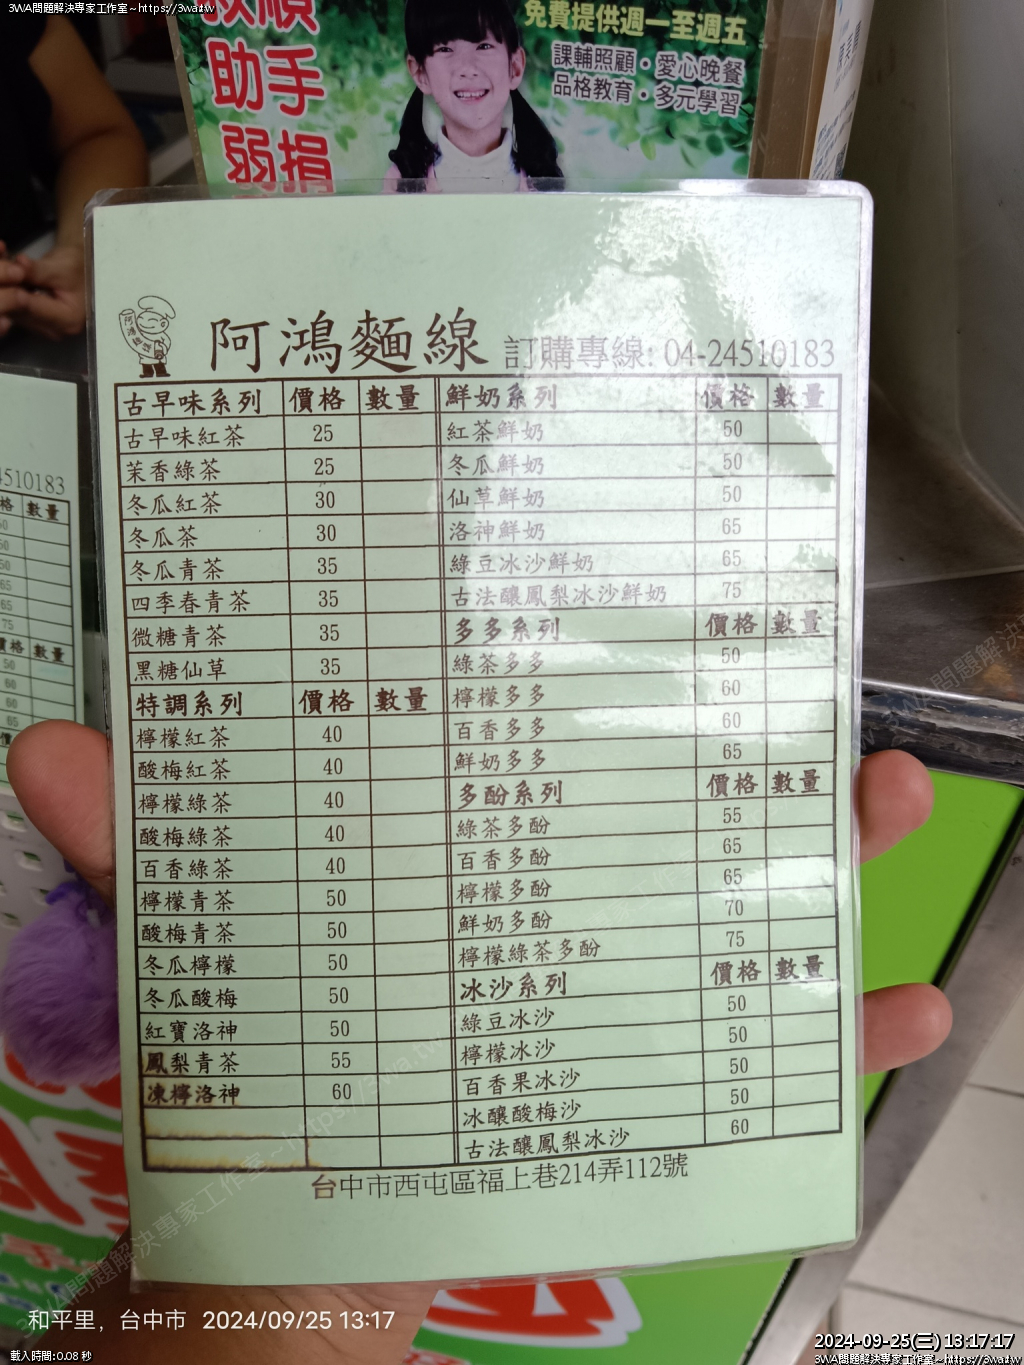 3WA問題解決專家工作室~https://3wa.tw
救順
助手
弱捐
免費提供週一至週五
課輔照顧・愛心晚餐
品格教育・多元學習
阿鴻麵線 訂購專線: 04-24510183
古早味系列 價格 數量 鮮奶系列 價格 數量
古早味紅茶 25 紅茶鮮奶 50
茉香綠茶 25 冬瓜鮮奶 50
冬瓜紅茶 30 仙草鮮奶 50
冬瓜茶 30 洛神鮮奶 65
冬瓜青茶 35 綠豆冰沙鮮奶 65
四季春青茶 35 古法釀鳳梨冰沙鮮奶 75
微糖青茶 35 多多系列 價格 數量
黑糖仙草 35 綠茶多多 50
特調系列 價格 數量 檸檬多多 60
檸檬紅茶 40 百香多多 60
酸梅紅茶 40 鮮奶多多 65
檸檬綠茶 40 多酚系列 價格 數量
酸梅綠茶 40 綠茶多酚 55
百香綠茶 40 百香多酚 65
檸檬青茶 50 檸檬多酚 65
酸梅青茶 50 鮮奶多酚 70
冬瓜檸檬 50 檸檬綠茶多酚 75
冬瓜酸梅 50 冰沙系列 價格 數量
紅寶洛神 50 綠豆冰沙 50
鳳梨青茶 55 檸檬冰沙 50
凍檸洛神 60 百香果冰沙 50
冰釀酸梅沙 50
古法釀鳳梨冰沙 60
台中市西屯區福上巷214弄112號
4510183
格 數量
50
50
50
65
65
75
價格 數量
50
60
60
65
和平里，台中市 2024/09/25 13:17
載入時間:0.08 秒
2024-09-25(三) 13:17:17
3WA問題解決專家工作室~https://3wa.tw